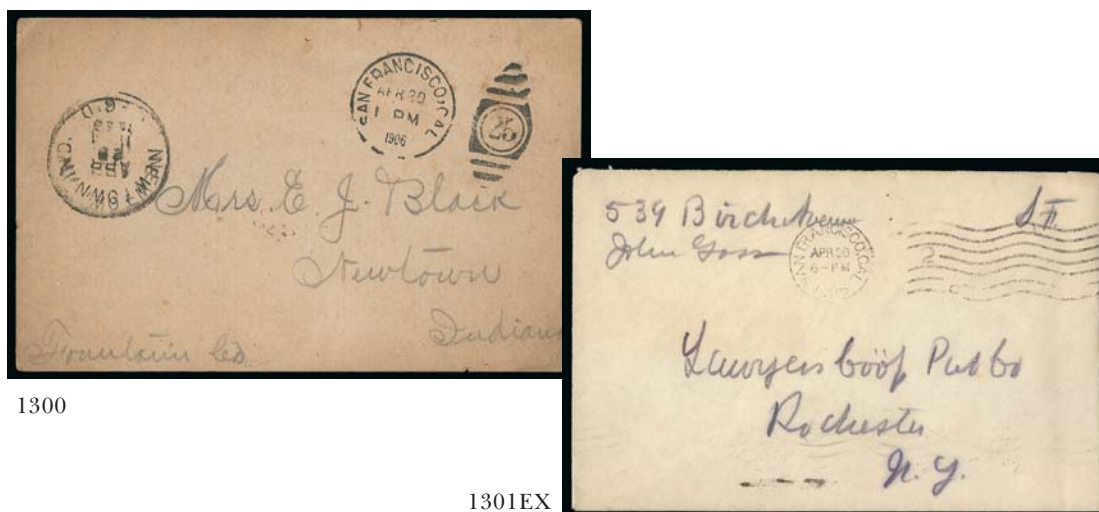 SAN FRANCISCO, CAL
APR 20
1 PM
1906
25
Mrs. E. J. Black
Newtown
Indiana
Fountain Co.
1300
539 Birch Avenue
John Goss
S.F.
SAN FRANCISCO, CAL
APR 20
6-PM
2
Lawyers Coöp Pub Co
Rochester
N. Y.
1301EX